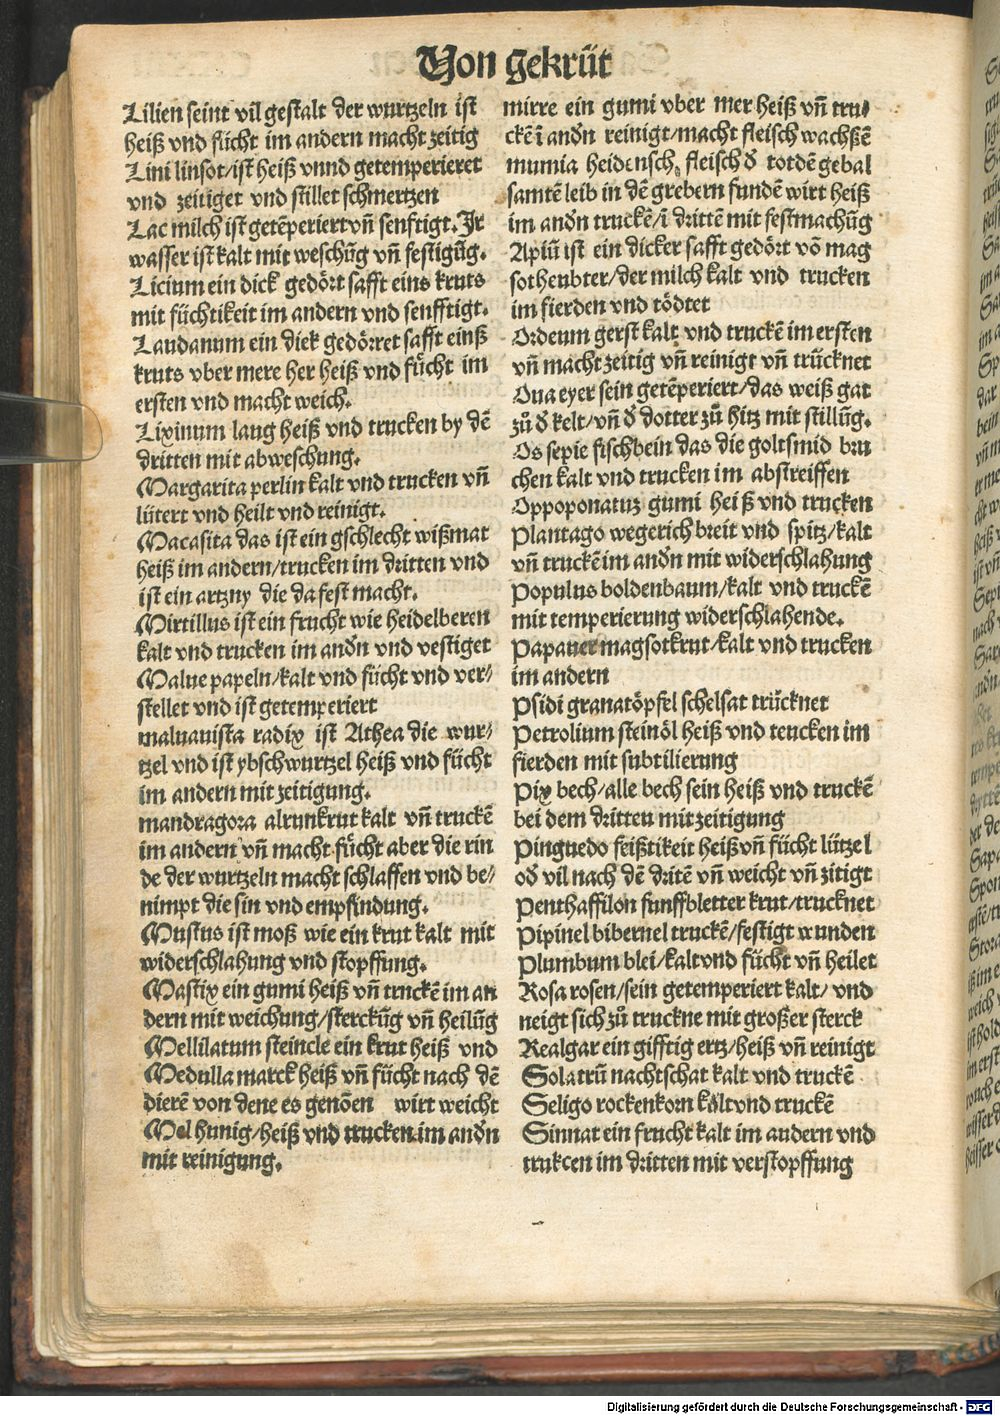 Von gekrüt
Lilien seint vil gestalt der wurtzeln ist
heiß vnd fücht im andern macht zeitig
Lini linsot/ist heiß vnnd getemperieret
vnd zeitiget vnd stillet schmertzen
Lac milch ist getēperiert vñ senftigt. Ir
wasser ist kalt mit weschūg vñ festigūg.
Licium ein dick gedört safft eins kruts
mit füchtikeit im andern vnd senfftigt.
Laudanum ein diek gedörret safft einß
kruts vber mere her heiß vnd fücht im
ersten vnd macht weich.
Lixinum laug heiß vnd trucken by dē
dritten mit abweschung.
Margarita perlin kalt vnd trucken vñ
lütert vnd heilt vnd reinigt.
Macasita das ist ein gschlecht wißmat
heiß im andern/trucken im dritten vnd
ist ein artzny die da fest macht.
Mirtillus ist ein frucht wie heidelberen
kalt vnd trucken im andn vnd vestiget
Malue papeln/kalt vnd fücht vnd ver/
stellet vnd ist getemperiert
maluauista radix ist Athea die wur/
tzel vnd ist ybschwurtzel heiß vnd fücht
im andern mit zeitigung.
mandragora alrunkrut kalt vñ truckē
im andern vñ macht fücht aber die rin
de der wurtzeln macht schlaffen vnd be/
nimpt die sin vnd empfindung.
Mustus ist moß wie ein krut kalt mit
widerschlahung vnd stopffung.
Mastix ein gumi heiß vñ truckē im an
dern mit weichung/sterckūg vñ heilūg
Mellilatum steincle ein krut heiß vnd
Medulla marck heiß vñ fücht nach dē
dierē von dene es genōen wirt weicht
Mel hunig/heiß vnd trucken im andn
mit reinigung.
mirre ein gumi vber mer heiß vñ tru/
ckē ī andn reinigt/macht fleisch wachßē
mumia heidensch fleisch d totdē gebal
samtē leib in dē grebern fundē wirt heiß
im andn truckē/ī drittē mit festmachūg
Apiū ist ein dicker safft gedört vō mag
sotheubter/der milch kalt vnd trucken
im fierden vnd tödtet
Ordeum gerst kalt vnd truckē im ersten
vñ macht zeitig vñ reinigt vñ trücknet
Oua eyer sein getēperiert/das weiß gat
zů d kelt/vñ d dotter zů hitz mit stillūg.
Os sepie fischbein das die goltsmid bru
chen kalt vnd trucken im abstreiffen
Oppoponatuz gumi heiß vnd trucken
Plantago wegerich breit vnd spitz/kalt
vñ truckē im andn mit widerschlahung
Populus boldenbaum/kalt vnd truckē
mit temperierung widerschlahende.
Papauer magsotkrut/kalt vnd trucken
im andern
Psidi granatöpfel schelsat trücknet
Petrolium steinöl heiß vnd teucken im
fierden mit subtilierung
Pix bech/alle bech sein heiß vnd truckē
bei dem dritten mit zeitigung
Pinguedo feißtikeit heiß vñ fücht lützel
od vil nach dē dritē vñ weicht vñ zitigt
Penthaffilon funffbletter krut/trucknet
Pipinel bibernel truckē/festigt wunden
Plumbum blei/kalt vnd fücht vñ heilet
Rosa rosen/sein getemperiert kalt/ vnd
neigt sich zů truckne mit großer sterck
Realgar ein gifftig ertz/heiß vñ reinigt
Solatrū nachtschat kalt vnd truckē
Seligo rockenkorn kalt vnd truckē
Sinnat ein frucht kalt im andern vnd
trukcen im dritten mit verstopffung
Digitalisierung gefördert durch die Deutsche Forschungsgemeinschaft - DFG